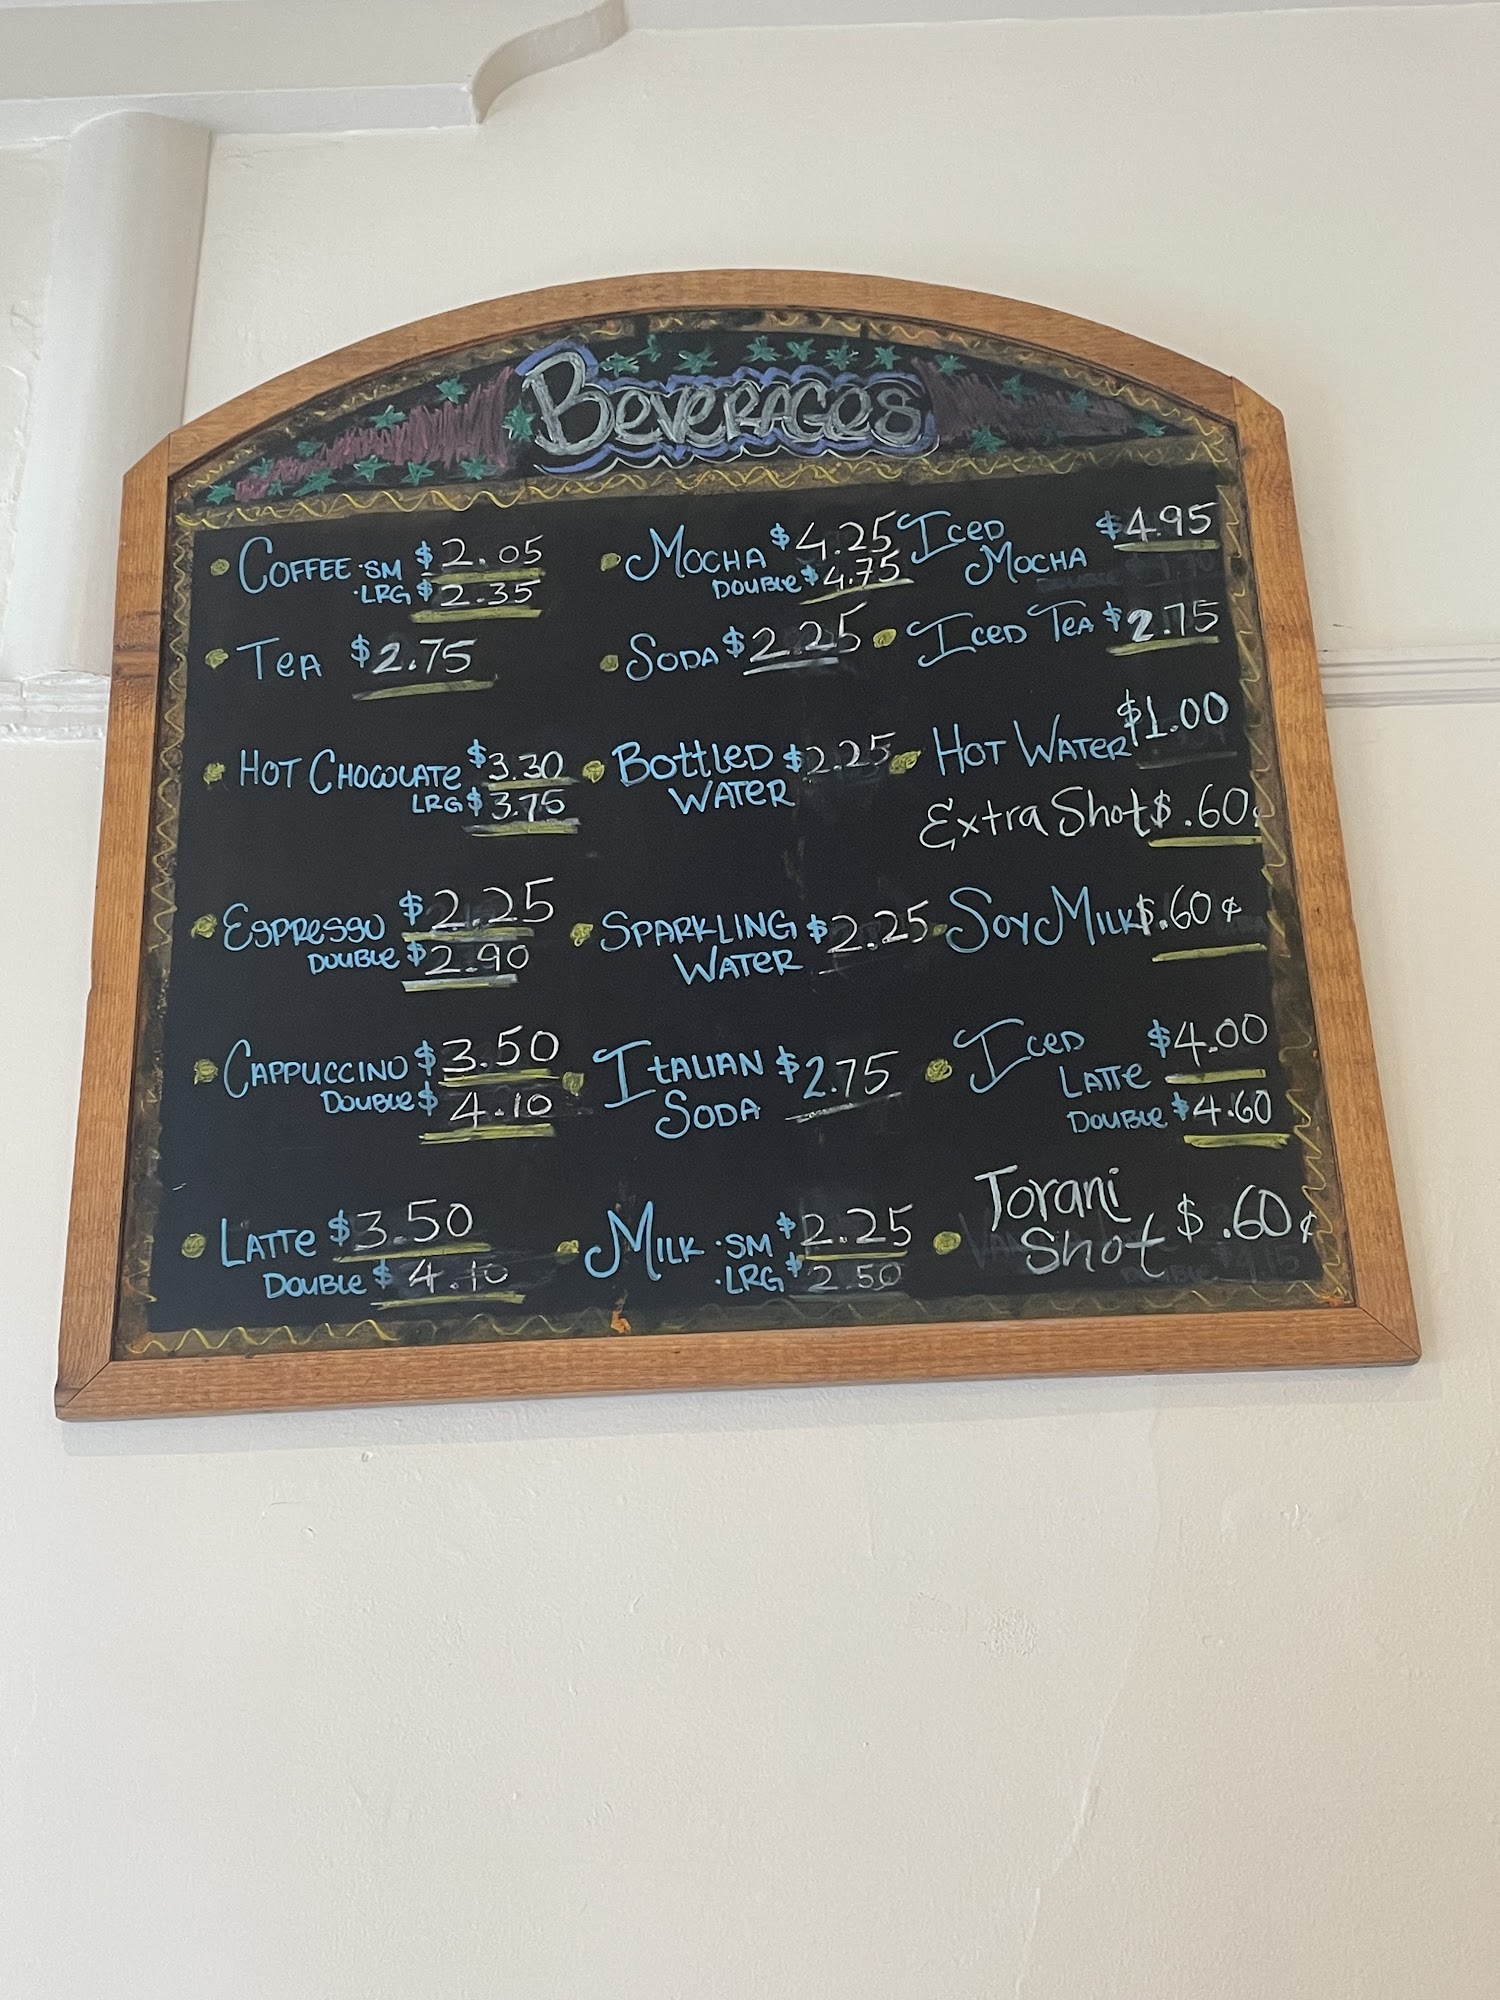 BEVERAGES
COFFEE ·SM $2.05
·LRG $2.35
TEA $2.75
HOT CHOCOLATE $3.30
LRG $3.75
ESPRESSO $2.25
DOUBLE $2.90
CAPPUCCINO $3.50
DOUBLE $4.10
LATTE $3.50
DOUBLE $4.10
MOCHA $4.25
DOUBLE $4.75
SODA $2.25
BOTTLED $2.25
WATER
SPARKLING $2.25
WATER
ITALIAN $2.75
SODA
MILK ·SM $2.25
·LRG $2.50
ICED $4.95
MOCHA
ICED TEA $2.75
HOT WATER $1.00
Extra Shot $.60¢
SOY MILK $.60¢
ICED $4.00
LATTE
DOUBLE $4.60
Torani
Shot $.60¢